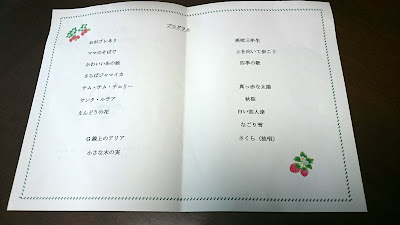 プログラム
おおブレネリ
ママのそばで
かわいいあの娘
さらばジャマイカ
チム・チム・チェリー
サンタ・ルチア
えんどうの花
G線上のアリア
小さな木の実
高校三年生
上を向いて歩こう
四季の歌
真っ赤な太陽
秋桜
白い恋人達
なごり雪
さくら（独唱）